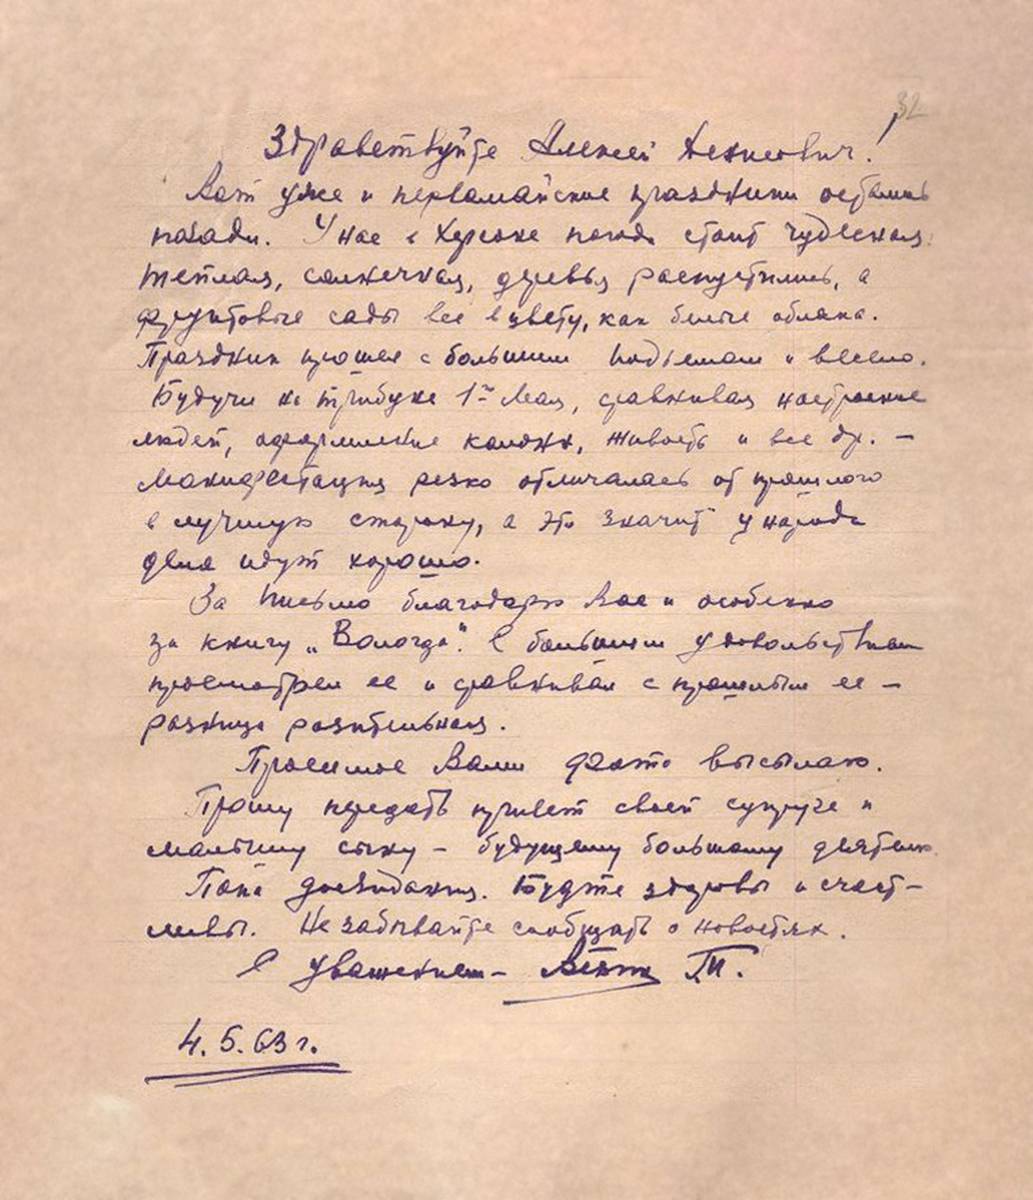 32
Здравствуйте Алексей!
Вот уже и первомайские праздники остались
позади. У нас в Херсоне погода стоит чудесная:
теплая, солнечная, деревья распустились, а
фруктовые сады все в цвету, как белые облака.
Праздник прошел с большим подъемом и весело.
Будучи на трибуне 1го Мая, сравнивая настроение
людей, оформление колонн, живость и все др. —
манифестация резко отличалась от прошлого
в лучшую сторону, а это значит у народа
дела идут хорошо.
За письмо благодарю Вас и особенно
за книгу „Вологда". С большим удовольствием
просмотрел ее и сравнивал с прошлым ее —
разница разительная.
Просимое Вами фото высылаю.
Прошу передать привет своей супруге и
малышу сыну — будущему большому деятелю.
Пока до свидания. Будьте здоровы и счаст-
ливы. Не забывайте сообщать о новостях.
С уважением —
4.5.63 г.